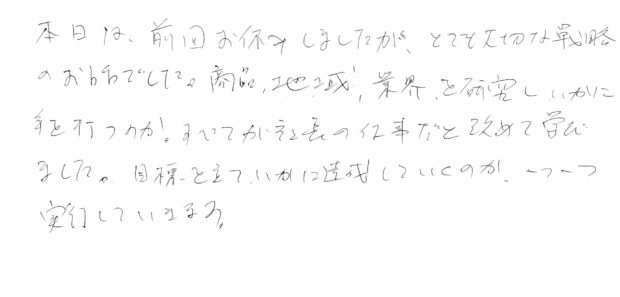 本日は、前回お休みしましたが、とても大切な戦略
のお話でした。商品、地域、業界を研究し、いかに
手を打つのか！すべてが社長の仕事だと改めて学び
ました。目標を立て、いかに達成していくのか、一つ一つ
実行していきます。